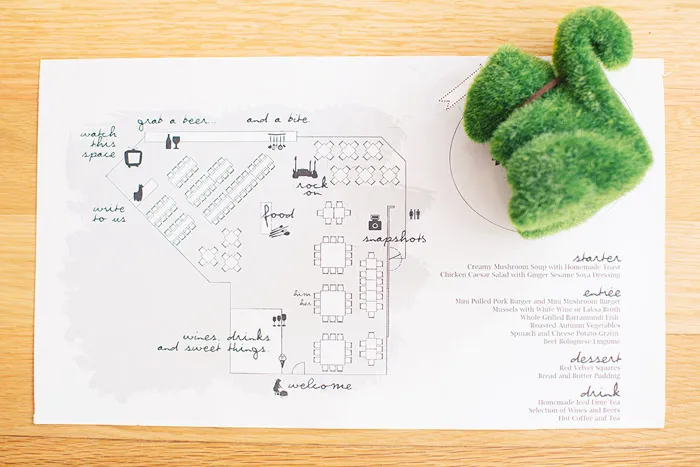 grab a beer...
and a bite
watch
this
space
rock
on
write
to us
food
snapshots
him
her
wines, drinks
and sweet things.
welcome
starter
Creamy Mushroom Soup with Homemade Toast
Chicken Caesar Salad with Ginger Sesame Soya Dressing
entrée
Mini Pulled Pork Burger and Mini Mushroom Burger
Mussels with White Wine or Laksa Broth
Whole Grilled Barramundi Fish
Roasted Autumn Vegetables
Spinach and Cheese Potato Gratin
Beef Bolognese Linguine
dessert
Red Velvet Squares
Bread and Butter Pudding
drink
Homemade Iced Lime Tea
Selection of Wines and Beers
Hot Coffee and Tea